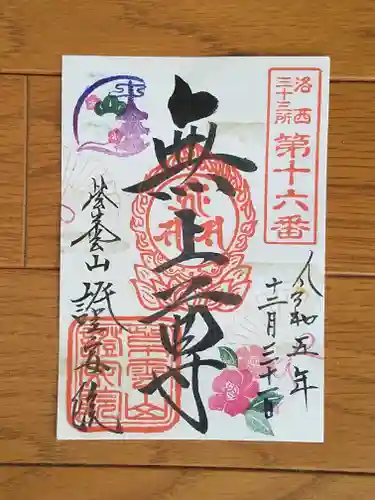 洛西
三十三所
第十六番
令和五年
十二月三十一日
無上尊
紫雲山 證安院